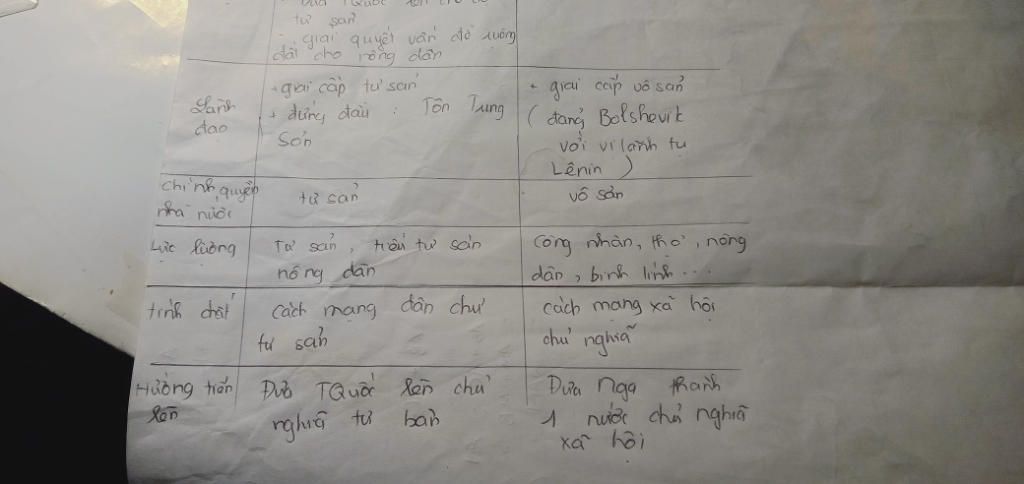 tư sản
giai quyết vấn đề ruộng
đất cho nông dân
Lãnh đạo
+ giai cấp tư sản
+ đứng đầu : Tôn Trung
Sơn
+ giai cấp vô sản
( đảng Bolshevik
với vị lãnh tụ
Lênin )
chính quyền
nhà nước
tư sản
vô sản
Lực lượng
Tư sản, tiểu tư sản
nông dân
Công nhân, thợ, nông
dân, binh lính...
tính chất
cách mạng dân chủ
tư sản
cách mạng xã hội
chủ nghĩa
Hướng tiến
lên
Đưa TQuốc lên chủ
nghĩa tư bản
Đưa Nga thành
1 nước chủ nghĩa
xã hội